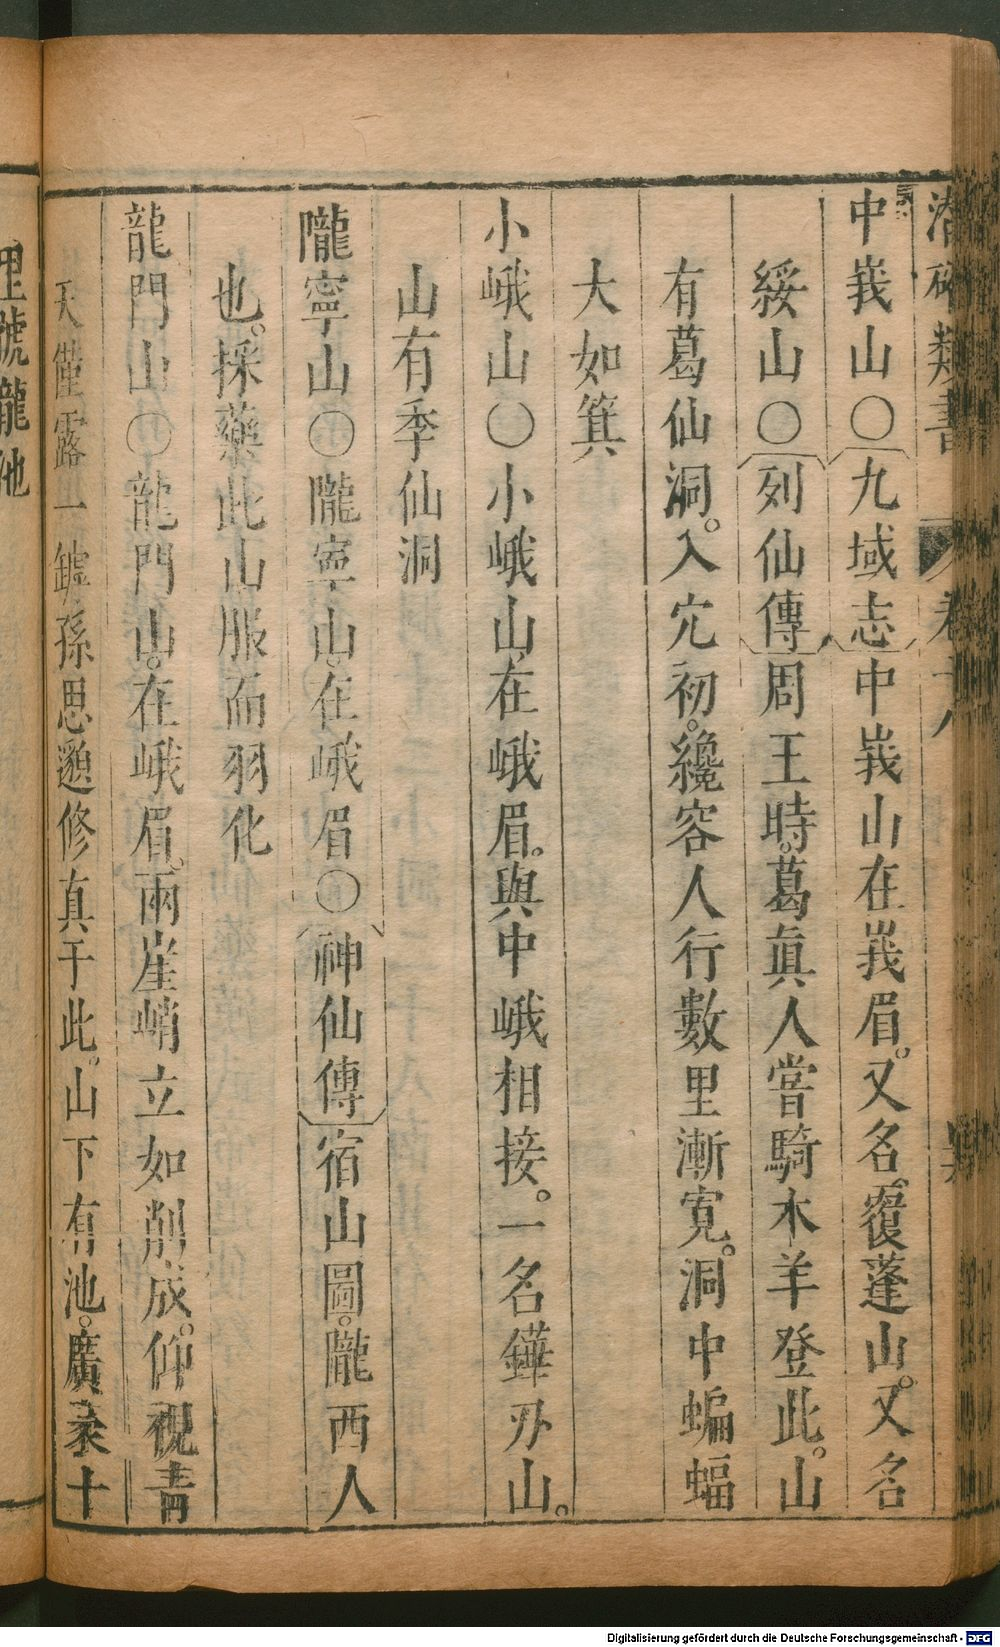 潛確類書 卷十八
中峩山〇九域志中峩山在峩眉。又名。覆蓬山。又名
綏山〇列仙傳周王時。葛眞人嘗騎木羊登此。山
有葛仙洞。入穴初。纔容人行數里漸寛。洞中蝙蝠
大如箕
小峨山〇小峨山在峨眉。與中峨相接。一名鏵刃山。
山有季仙洞
隴寧山〇隴寧山。在峨眉〇神仙傳宿山圖。隴西人
也。採藥此山服而羽化
龍門山〇龍門山。在峨眉。兩崖峭立如削成。仰視青
天僅露一罅孫思邈修真于此。山下有池。廣袤十
里號龍池
Digitalisierung gefördert durch die Deutsche Forschungsgemeinschaft - DFG